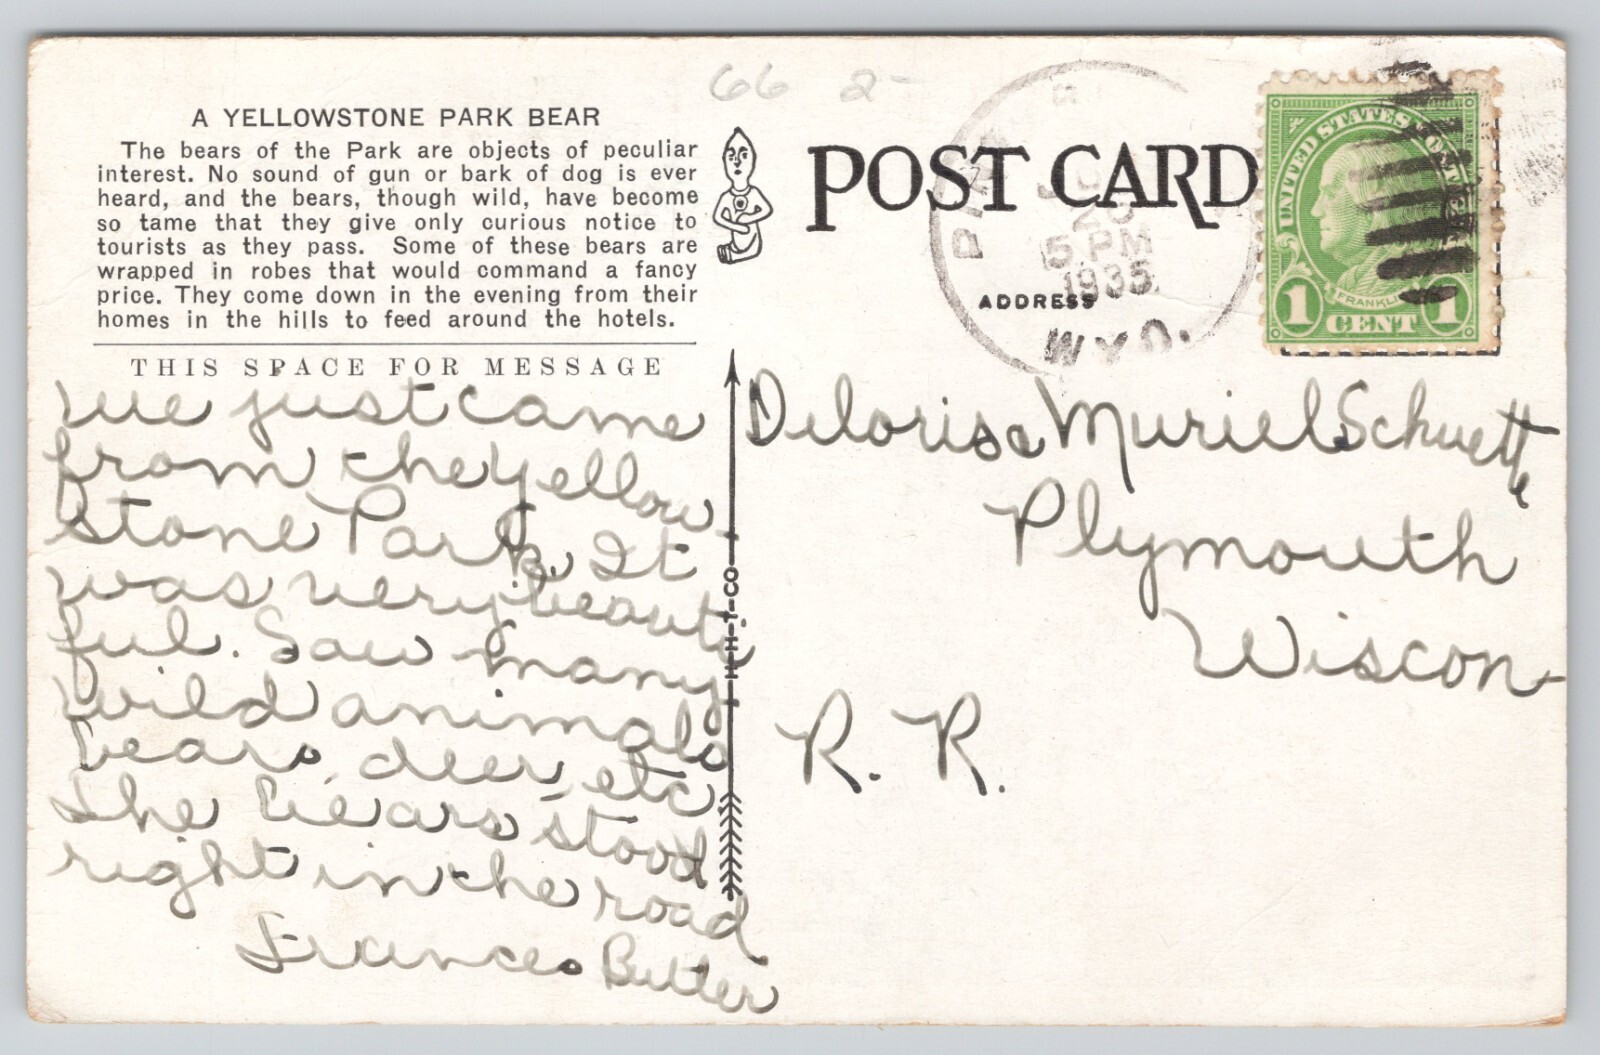 66 2-
A YELLOWSTONE PARK BEAR
The bears of the Park are objects of peculiar
interest. No sound of gun or bark of dog is ever
heard, and the bears, though wild, have become
so tame that they give only curious notice to
tourists as they pass. Some of these bears are
wrapped in robes that would command a fancy
price. They come down in the evening from their
homes in the hills to feed around the hotels.
THIS SPACE FOR MESSAGE
We just came
from the Yellow
stone Park. It
was very beauti
ful. Saw many
wild animals
bears, deer, etc
The bears stood
right in the road
Frances Butler
H-H-T-CO
POST CARD
ADDRESS
20
5 PM
1935
WYO.
UNITED STATES POSTAGE
FRANKLIN
1 CENT 1
Delorisa Muriel Schuette
Plymouth
Wiscon-
R. R.